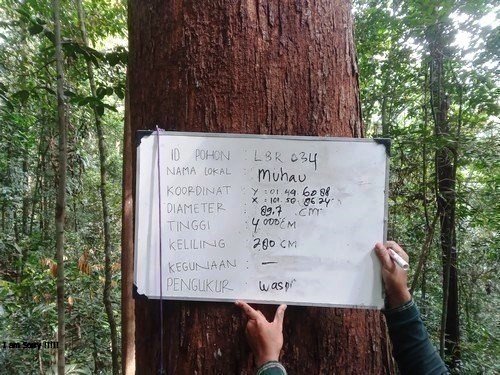 ID POHON : LBR 034
NAMA LOKAL : Muhau
KOORDINAT : Y : 01. 49. 60 88
X : 101. 50. 86 24
DIAMETER : 89,7 . CM
TINGGI : 4000 CM
KELILING : 280 CM
KEGUNAAN : —
PENGUKUR : waspi
I am Sory !!!!!